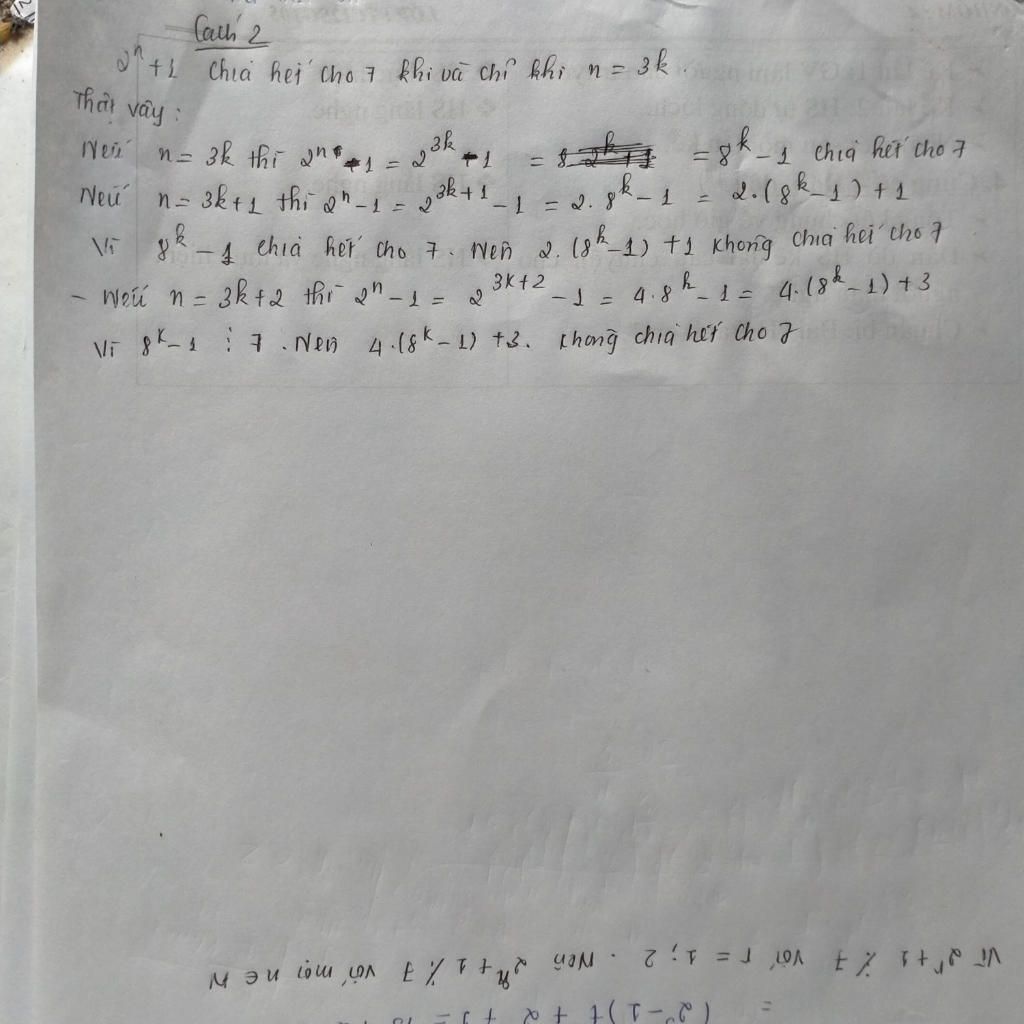 Cách 2
2ⁿ+1 chia hết cho 7 khi và chỉ khi n = 3k.
Thật vậy:
Nếu n = 3k thì 2ⁿ - 1 = 2^{3k} - 1 = 8^k - 1 chia hết cho 7
Nếu n = 3k+1 thì 2ⁿ - 1 = 2^{3k+1} - 1 = 2. 8^k - 1 = 2.(8^k - 1) + 1
Vì 8^k - 1 chia hết cho 7. Nên 2.(8^k - 1) + 1 không chia hết cho 7
- Nếu n = 3k+2 thì 2ⁿ - 1 = 2^{3k+2} - 1 = 4.8^k - 1 = 4.(8^k - 1) + 3
Vì 8^k - 1 ⋮ 7. Nên 4.(8^k - 1) + 3. không chia hết cho 7
Vì 2^r + 1 ⋮̸ 7 với r = 1; 2. Nên 2ⁿ + 1 ⋮̸ 7 với mọi n ∈ N